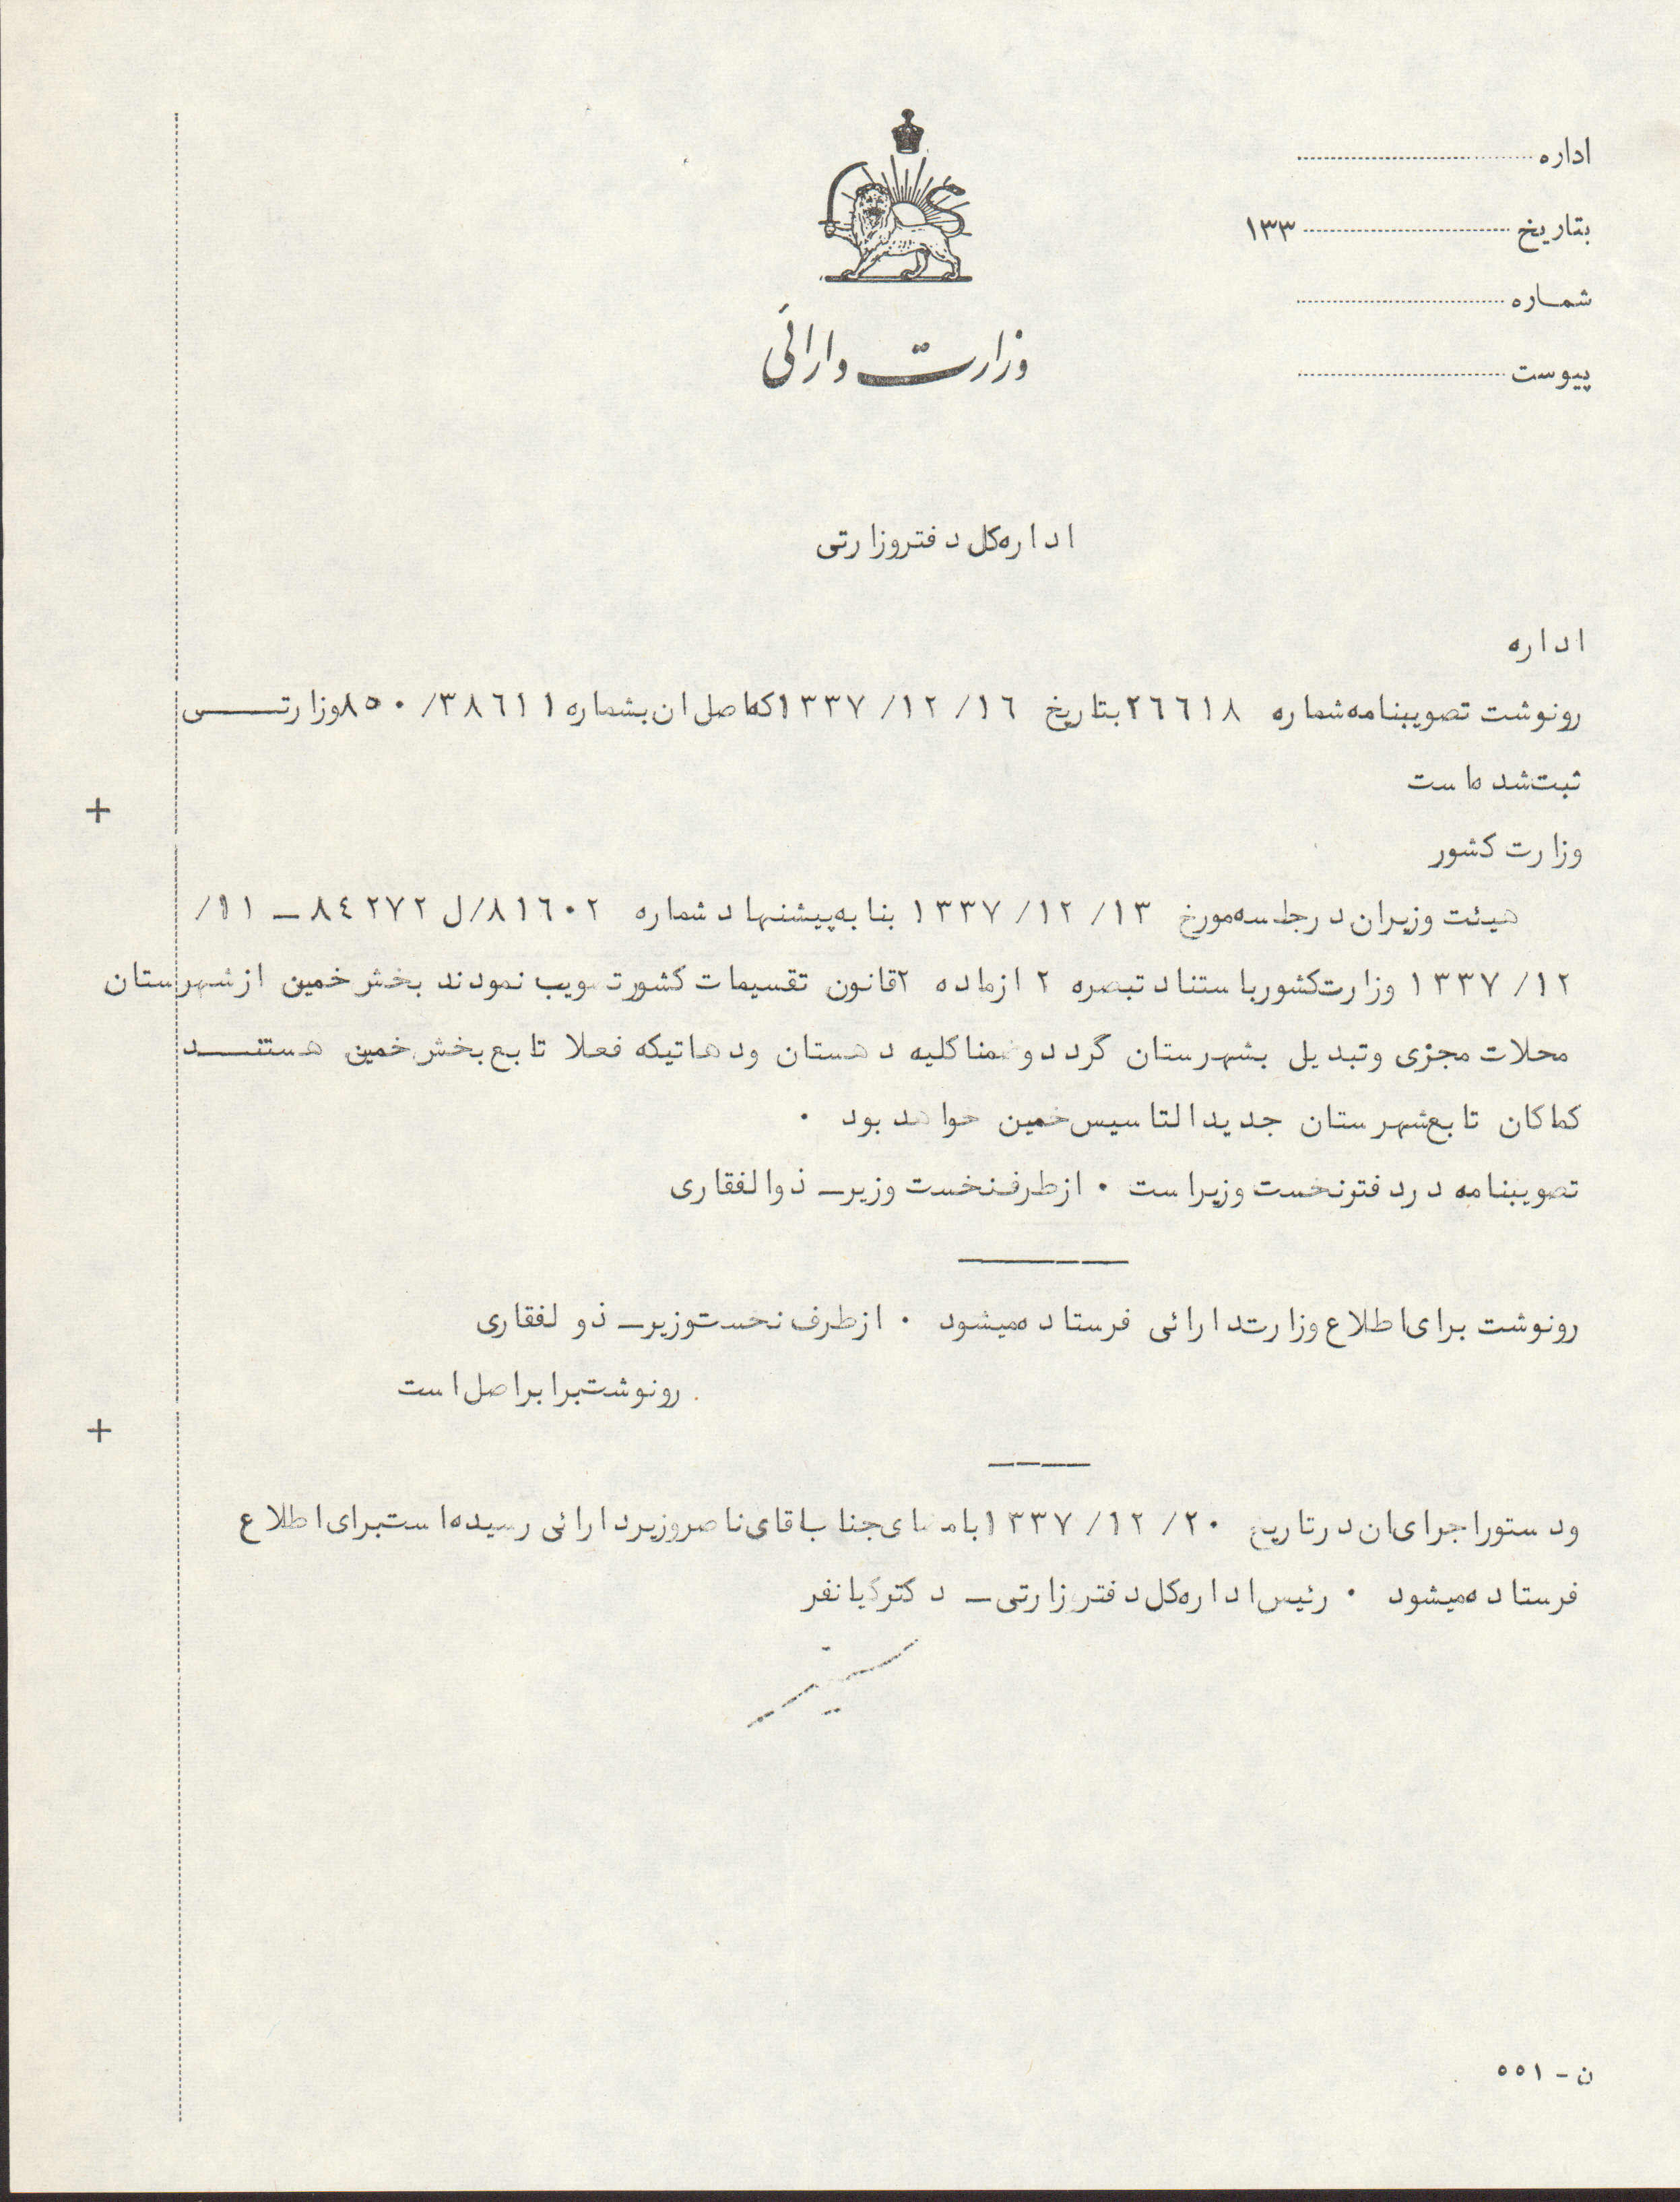 اداره
بتاریخ ۱۳۳
شماره
پیوست
وزارت دارائی
اداره کل دفتر وزارتی
اداره
رونوشت تصویبنامه شماره ۲۶۶۱۸ بتاریخ ۱۶/ ۱۲/ ۱۳۳۷ که اصل ان بشماره ۳۸۶۱۱/ ۸۵۰ وزارتی
ثبت شده است
وزارت کشور
هیئت وزیران در جلسه مورخ ۱۳/ ۱۲/ ۱۳۳۷ بنا به پیشنهاد شماره ۸۱۶۰۲/ل ۸۴۲۷۲ – ۱۱/
۱۲/ ۱۳۳۷ وزارت کشور باستناد تبصره ۲ از ماده ۲ قانون تقسیمات کشور تصویب نمودند بخش خمین از شهرستان
محلات مجزی و تبدیل بشهرستان گردد و ضمنا کلیه دهستان و دهاتیکه فعلا تابع بخش خمین هستند
کماکان تابع شهرستان جدید التاسیس خمین خواهد بود ۰
تصویبنامه در دفتر نخست وزیر است ۰ از طرف نخست وزیر – ذوالفقاری
رونوشت برای اطلاع وزارت دارائی فرستاده میشود ۰ از طرف نخست وزیر – ذو لفقاری
رونوشت برابر اصل است
و دستور اجرای ان در تاریخ ۲۰/ ۱۲/ ۱۳۳۷ بامضای جناب اقای ناصر وزیر دارائی رسیده است برای اطلاع
فرستاده میشود ۰ رئیس اداره کل دفتر وزارتی – دکتر کیانفر
ن – ۵۵۱